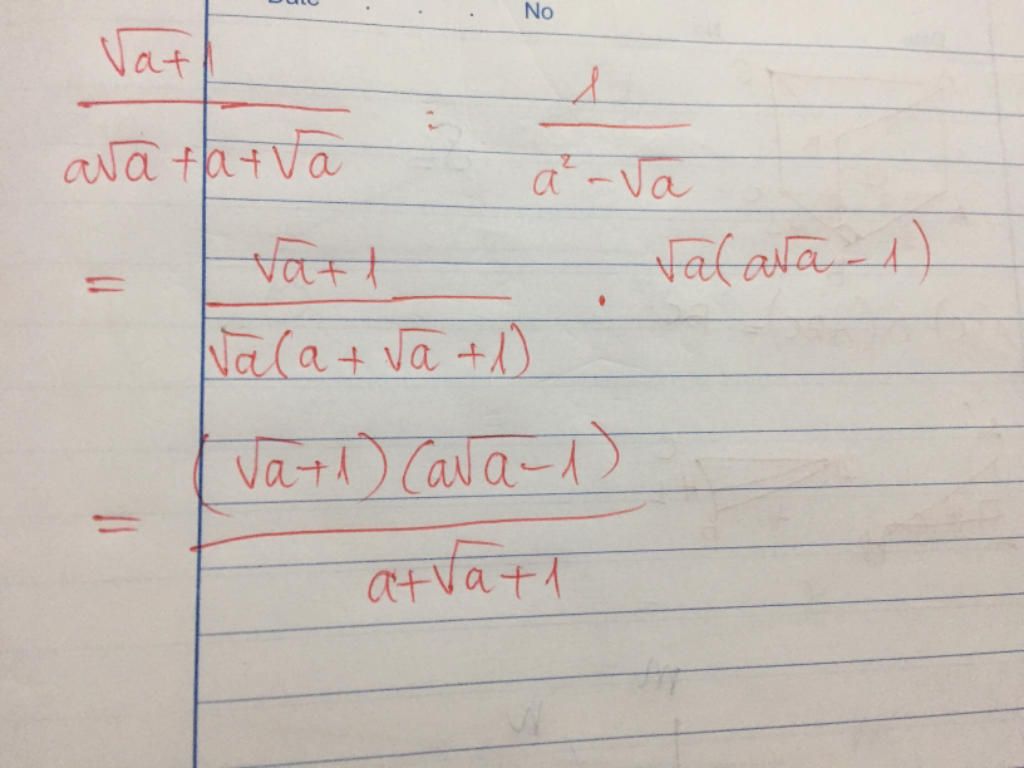 Date . . . No
√a+1 / a√a+a+√a : 1 / a²-√a
= √a+1 / √a(a+√a+1) . √a(a√a-1)
= (√a+1)(a√a-1) / a+√a+1